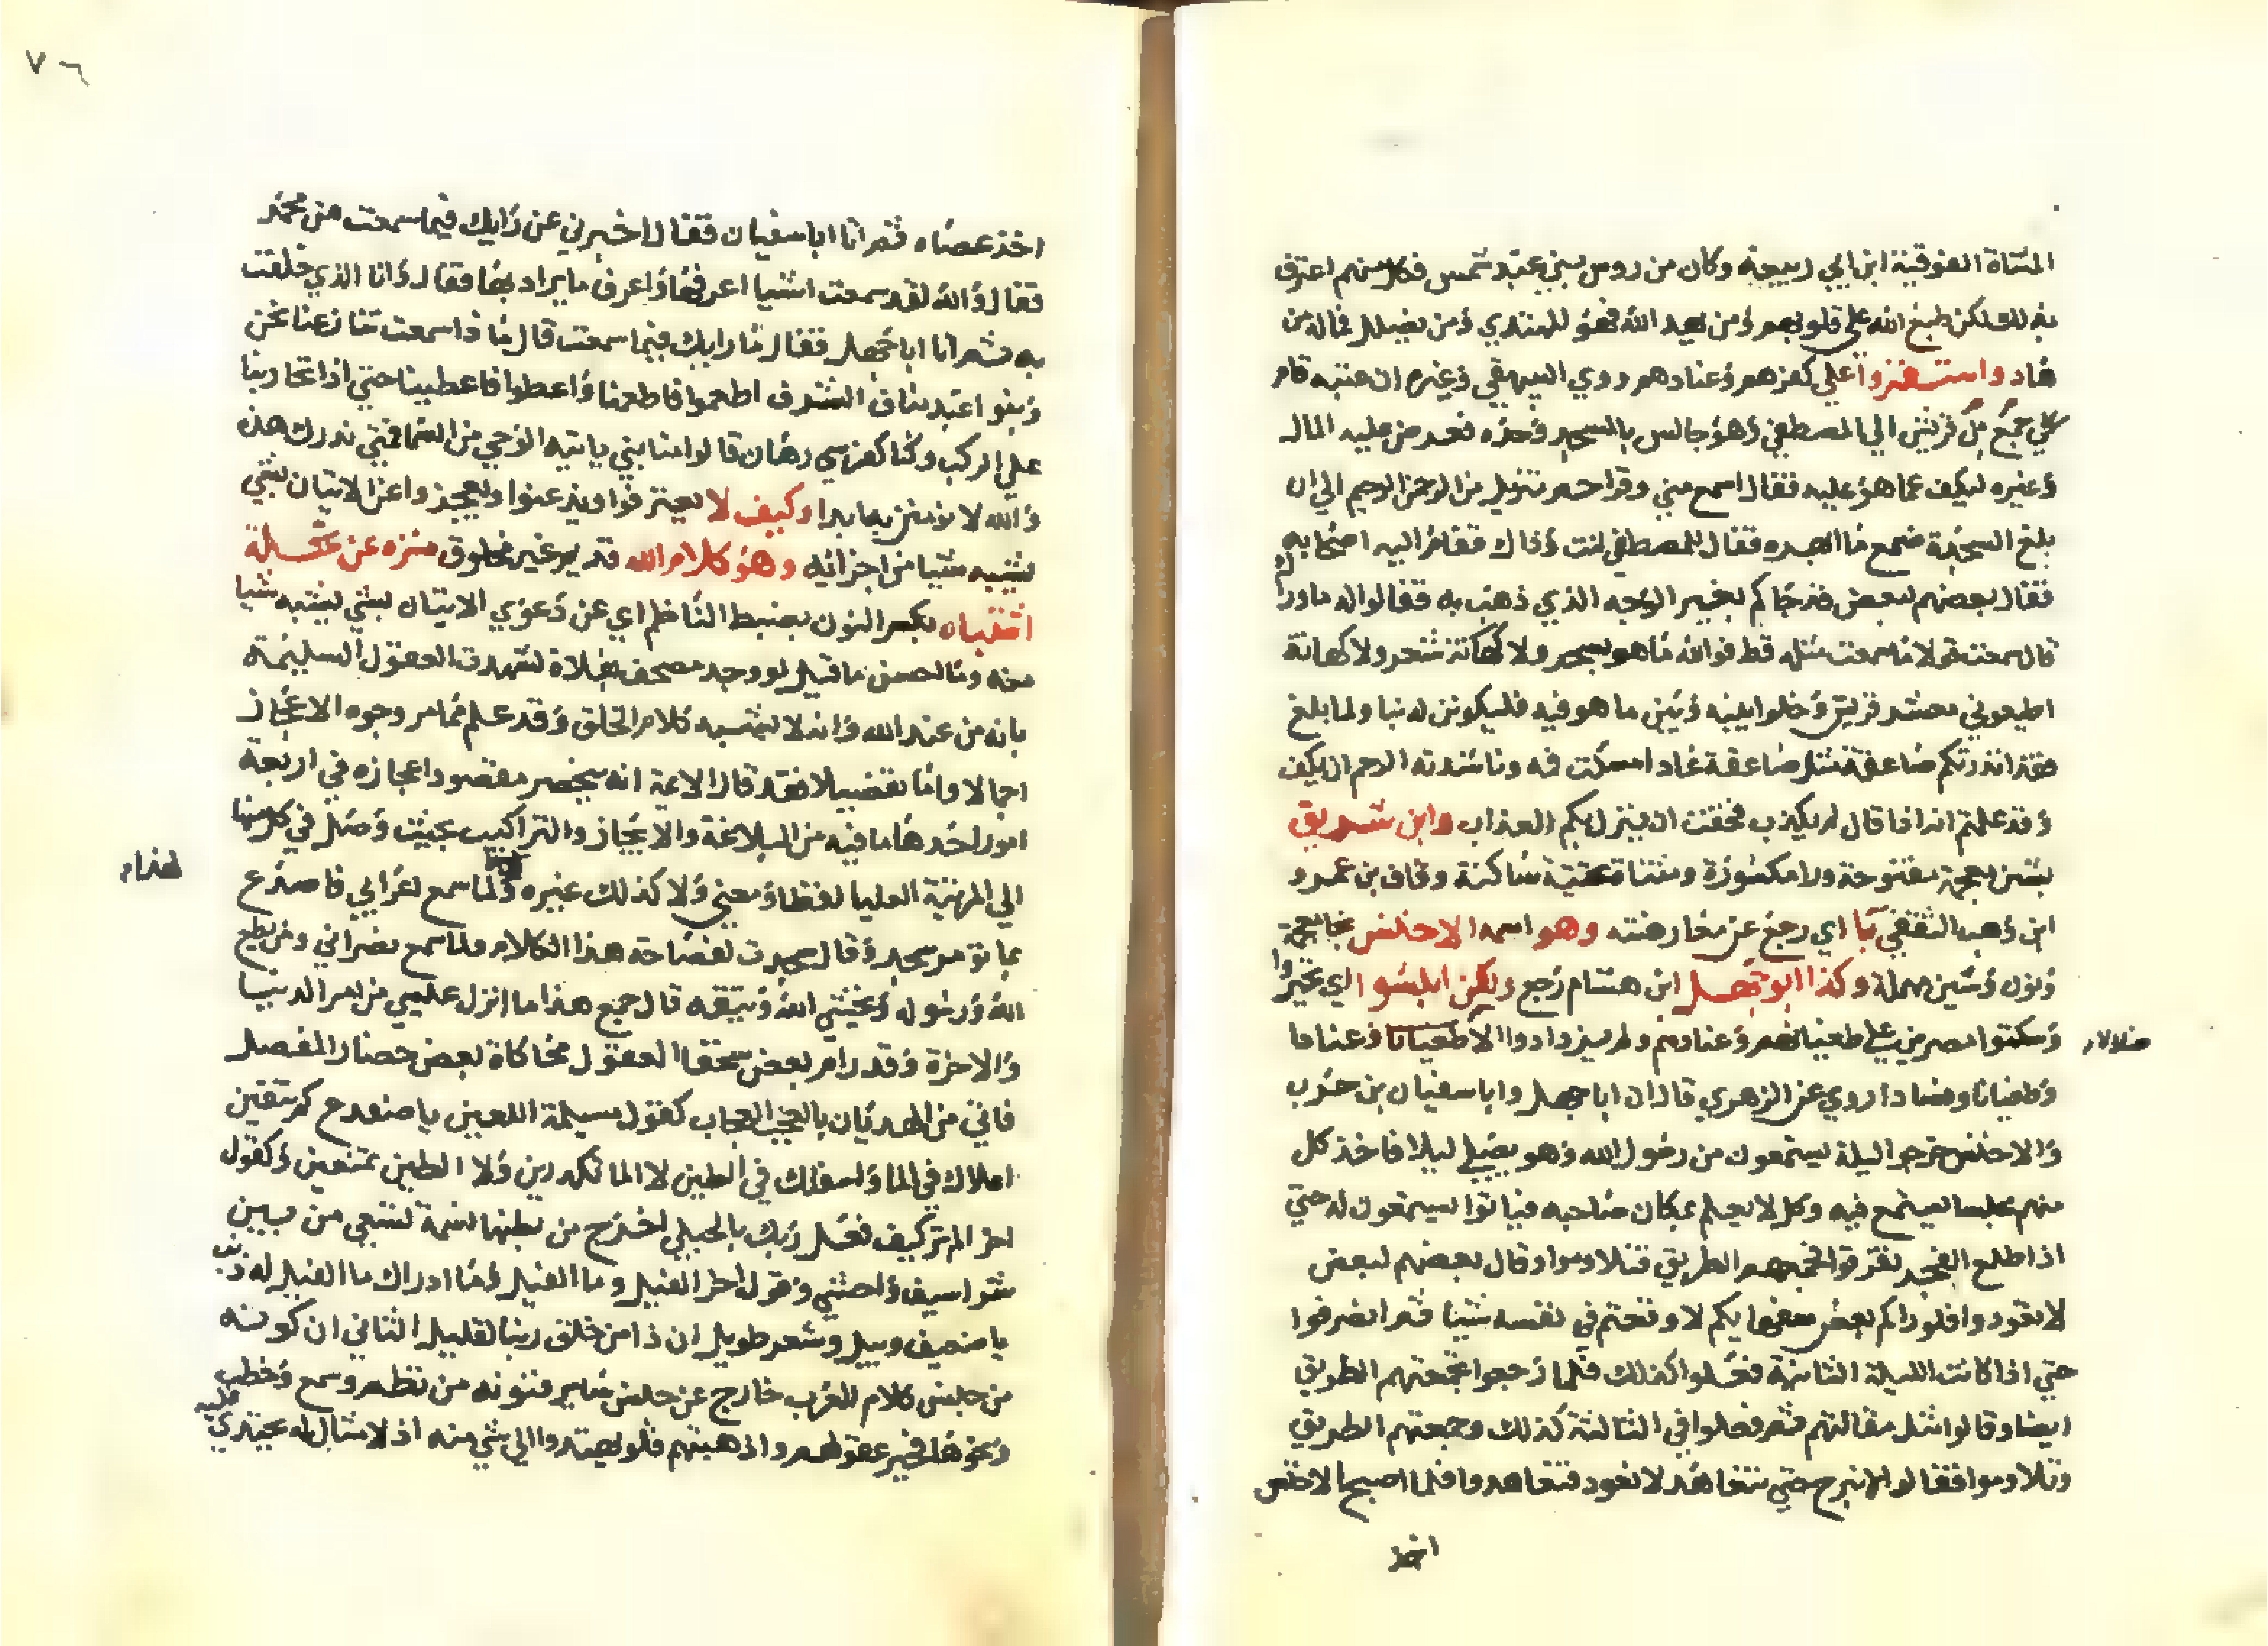 المثناة الفوقية ابن ابي ربيعة وكان من روس بني عبد شمس فكل منهم اعترف
بذلك لكن طبع الله علي قلوبهم ومن يهد الله فهو المهتدي ومن يضلل فما له من
هاد واستمروا علي كفرهم وعنادهم روي البيهقي وغيره ان عتبة قام
من قريش الي المصطفي وهو جالس بالمسجد وحده فعرض عليه المال
وغيره ليكف عما هو عليه فقال اسمع مني وقرا حم تنزيل من الرحمن الرحيم الي ان
بلغ السجدة فقال المصطفي انت وذاك فقام اليه اصحابه
فقال بعضهم لبعض قد جاكم بغير الوجه الذي ذهب به فقالوا له ما وراك
قال سمعت قولا ما سمعت مثله قط فوالله ما هو بسحر ولا كهانة شعر ولا كهانة
اطيعوني معشر قريش وخلوا بينه وبين ما هو فيه فليكونن له نبا ولما بلغ
فقد انذرتكم صاعقة مثل صاعقة عاد امسكت فه وناشدته الرحم ان يكف
وقد علمتم انه اذا قال لم يكذب فخفت ان ينزل بكم العذاب وابن شريق
بشين معجمة مفتوحة ورا مكسورة ومثناة تحتية ساكنة وقاف بن عمرو
ابن وهب الثقفي اي رجع عن معارضته وهو اسمه الاخنس بخا معجمة
ونون وسين مهملة وكذا ابو جهل ابن هشام رجع ولكن ابلسوا اي تحيروا
وسكتوا مصرين علي طغيانهم وعنادهم ولم يزدادوا الا طغيانا وعنادا
ضلالا
وطغيانا وفسادا روي عن الزهري قال ان ابا جهل وابا سفيان بن حرب
والاخنس خرجوا ليلة يستمعون من رسول الله وهو يصلي ليلا فاخذ كل
منهم مجلسا يستمع فيه وكل لا يعلم بمكان صاحبه فباتوا يستمعون له حتي
اذا طلع الفجر تفرقوا فجمعهم الطريق فتلاوموا وقال بعضهم لبعض
لا تعودوا فلو راكم بعض سفهايكم لاوقعتم في نفسه شيئا ثم انصرفوا
حتي اذا كانت الليلة الثانية فعلوا كذلك فلما رجعوا جمعتهم الطريق
ايضا وقالوا مثل مقالتهم ثم فعلوا في الثالثة كذلك وجمعتهم الطريق
وتلاوموا فقالوا لا نبرح حتي نتعاهد لا نعود فتعاهدوا فلما اصبح الاخنس
اخذ
٧٦
اخذ عصاه ثم اتا ابا سفيان فقال اخبرني عن رايك فيما سمعت من محمد
فقال والله لقد سمعت اشيا اعرفها واعرف ما يراد بها فقال وانا الذي حلفت
به ثم اتا ابا جهل فقال ما رايك فيما سمعت قال ماذا سمعت تنازعنا نحن
وبنو عبد مناف الشرف اطعموا فاطعمنا واعطوا فاعطينا حتي اذا تحاربنا
علي الركب وكنا كفرسي رهان قالوا منا نبي ياتيه الوحي من السما فمتي ندرك هذه
والله لا نومن به ابدا وكيف لا يعترفوا ويذعنوا ويعجزوا عن الاتيان بشي
يشبه شيا من اجزائه وهو كلام الله قديم غير مخلوق منزه عن نحلة
اتقان بكسر النون بضبط الناظم اي عن دعوي الاتيان بشي يشبه شيا
منه وما احسن ما قيل لو وجد مصحف بفلاة لشهدت العقول السليمة
بانه من عند الله وانه لا يشبه كلام الخلق وقد علم مما مر وجوه الاعجاز
اجمالا واما تفصيلا فقد قال الايمة انه ينحصر مقصود اعجازه في اربعة
امور احدها ما فيه من البلاغة والايجاز والتراكيب بحيث وصل في كل منها
الي المرتبة العليا لفظا ومعني ولا كذلك غيره ولما سمع اعرابي فاصدع
لهذا
بما تومر سجد وقال سجدت لفصاحة هذا الكلام ولما سمع نصراني ومن يطع
الله ورسوله ويخشي الله ويتقه قال جمع هذا ما انزل علي عيسي من امر الدنيا
والاخرة وقد رام بعض سخفا العقول محاكاة بعض قصار المفصل
فاتي من الهذيان بالعجب العجاب كقول مسيلمة اللعين يا ضفدع كم تنقين
اعلاك في الما واسفلك في الطين لا الما تكدرين ولا الطين تمنعين وكقول
اخر الم تر كيف فعل ربك بالحبلي اخرج من بطنها نسمة تسعي من بين
شراسيف واحشي وقول اخر الفيل وما الفيل وما ادراك ما الفيل له ذنب
وشعر طويل ان ذا من خلق ربنا لقليل الثاني ان كونه
من جنس كلام العرب خارج عن جنس ساير فنونه من نظم وسمع وخطب
ونحوها حير عقولهم واذهبتهم فلم يهتدوا الي شي منه اذ لا مثال له يحتذي
عليه